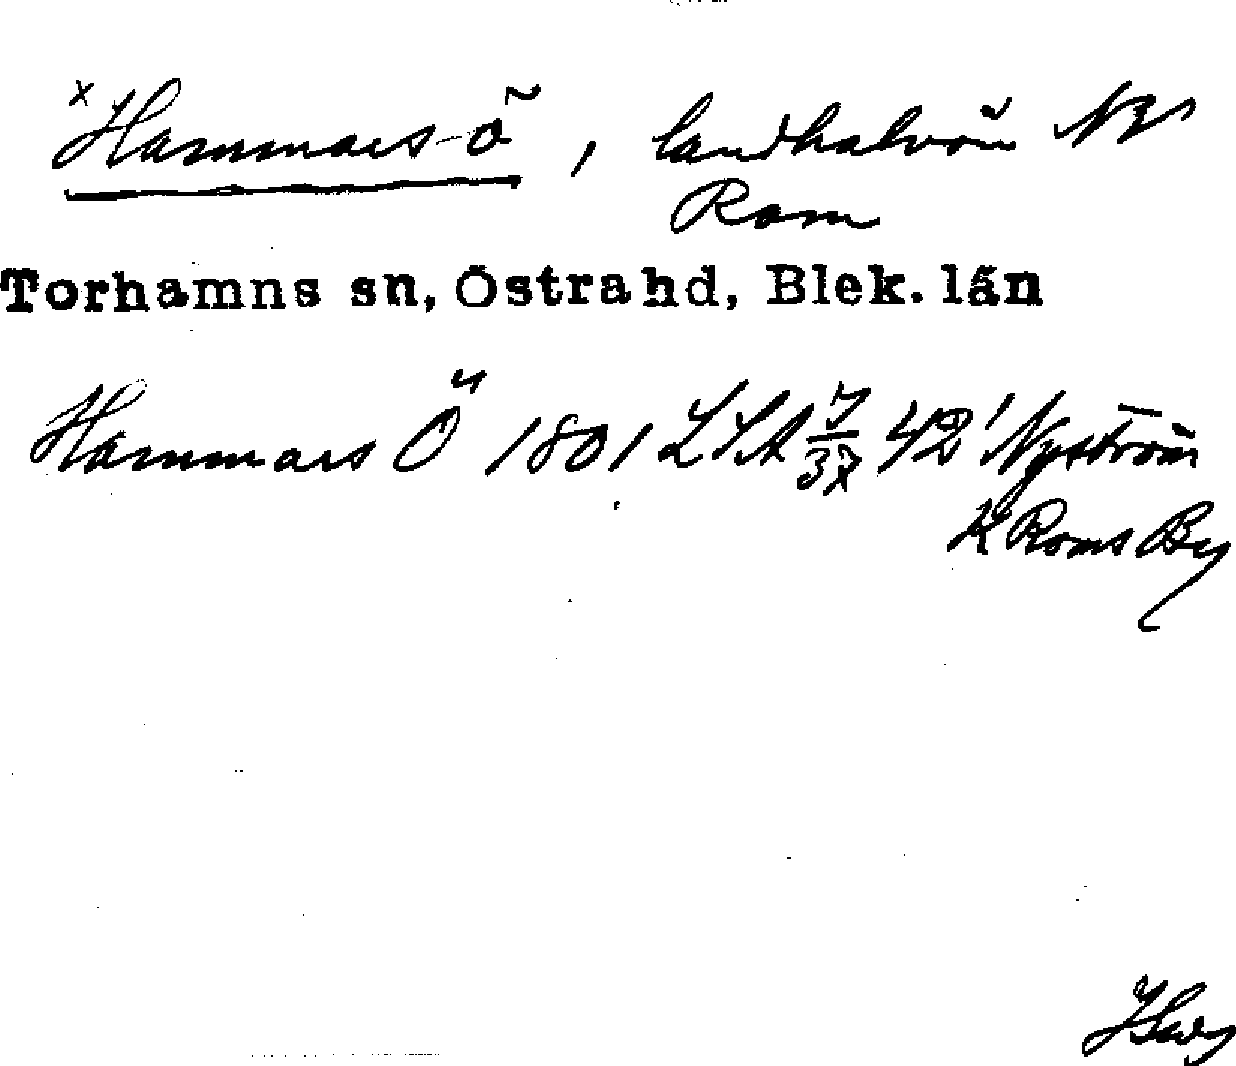 x Hammars-ö, landhalvön NV
Rom
Torhamns sn, Östra hd, Blek. län
Hammars Ö 1801 LSA 42' Nyström
K Roms By